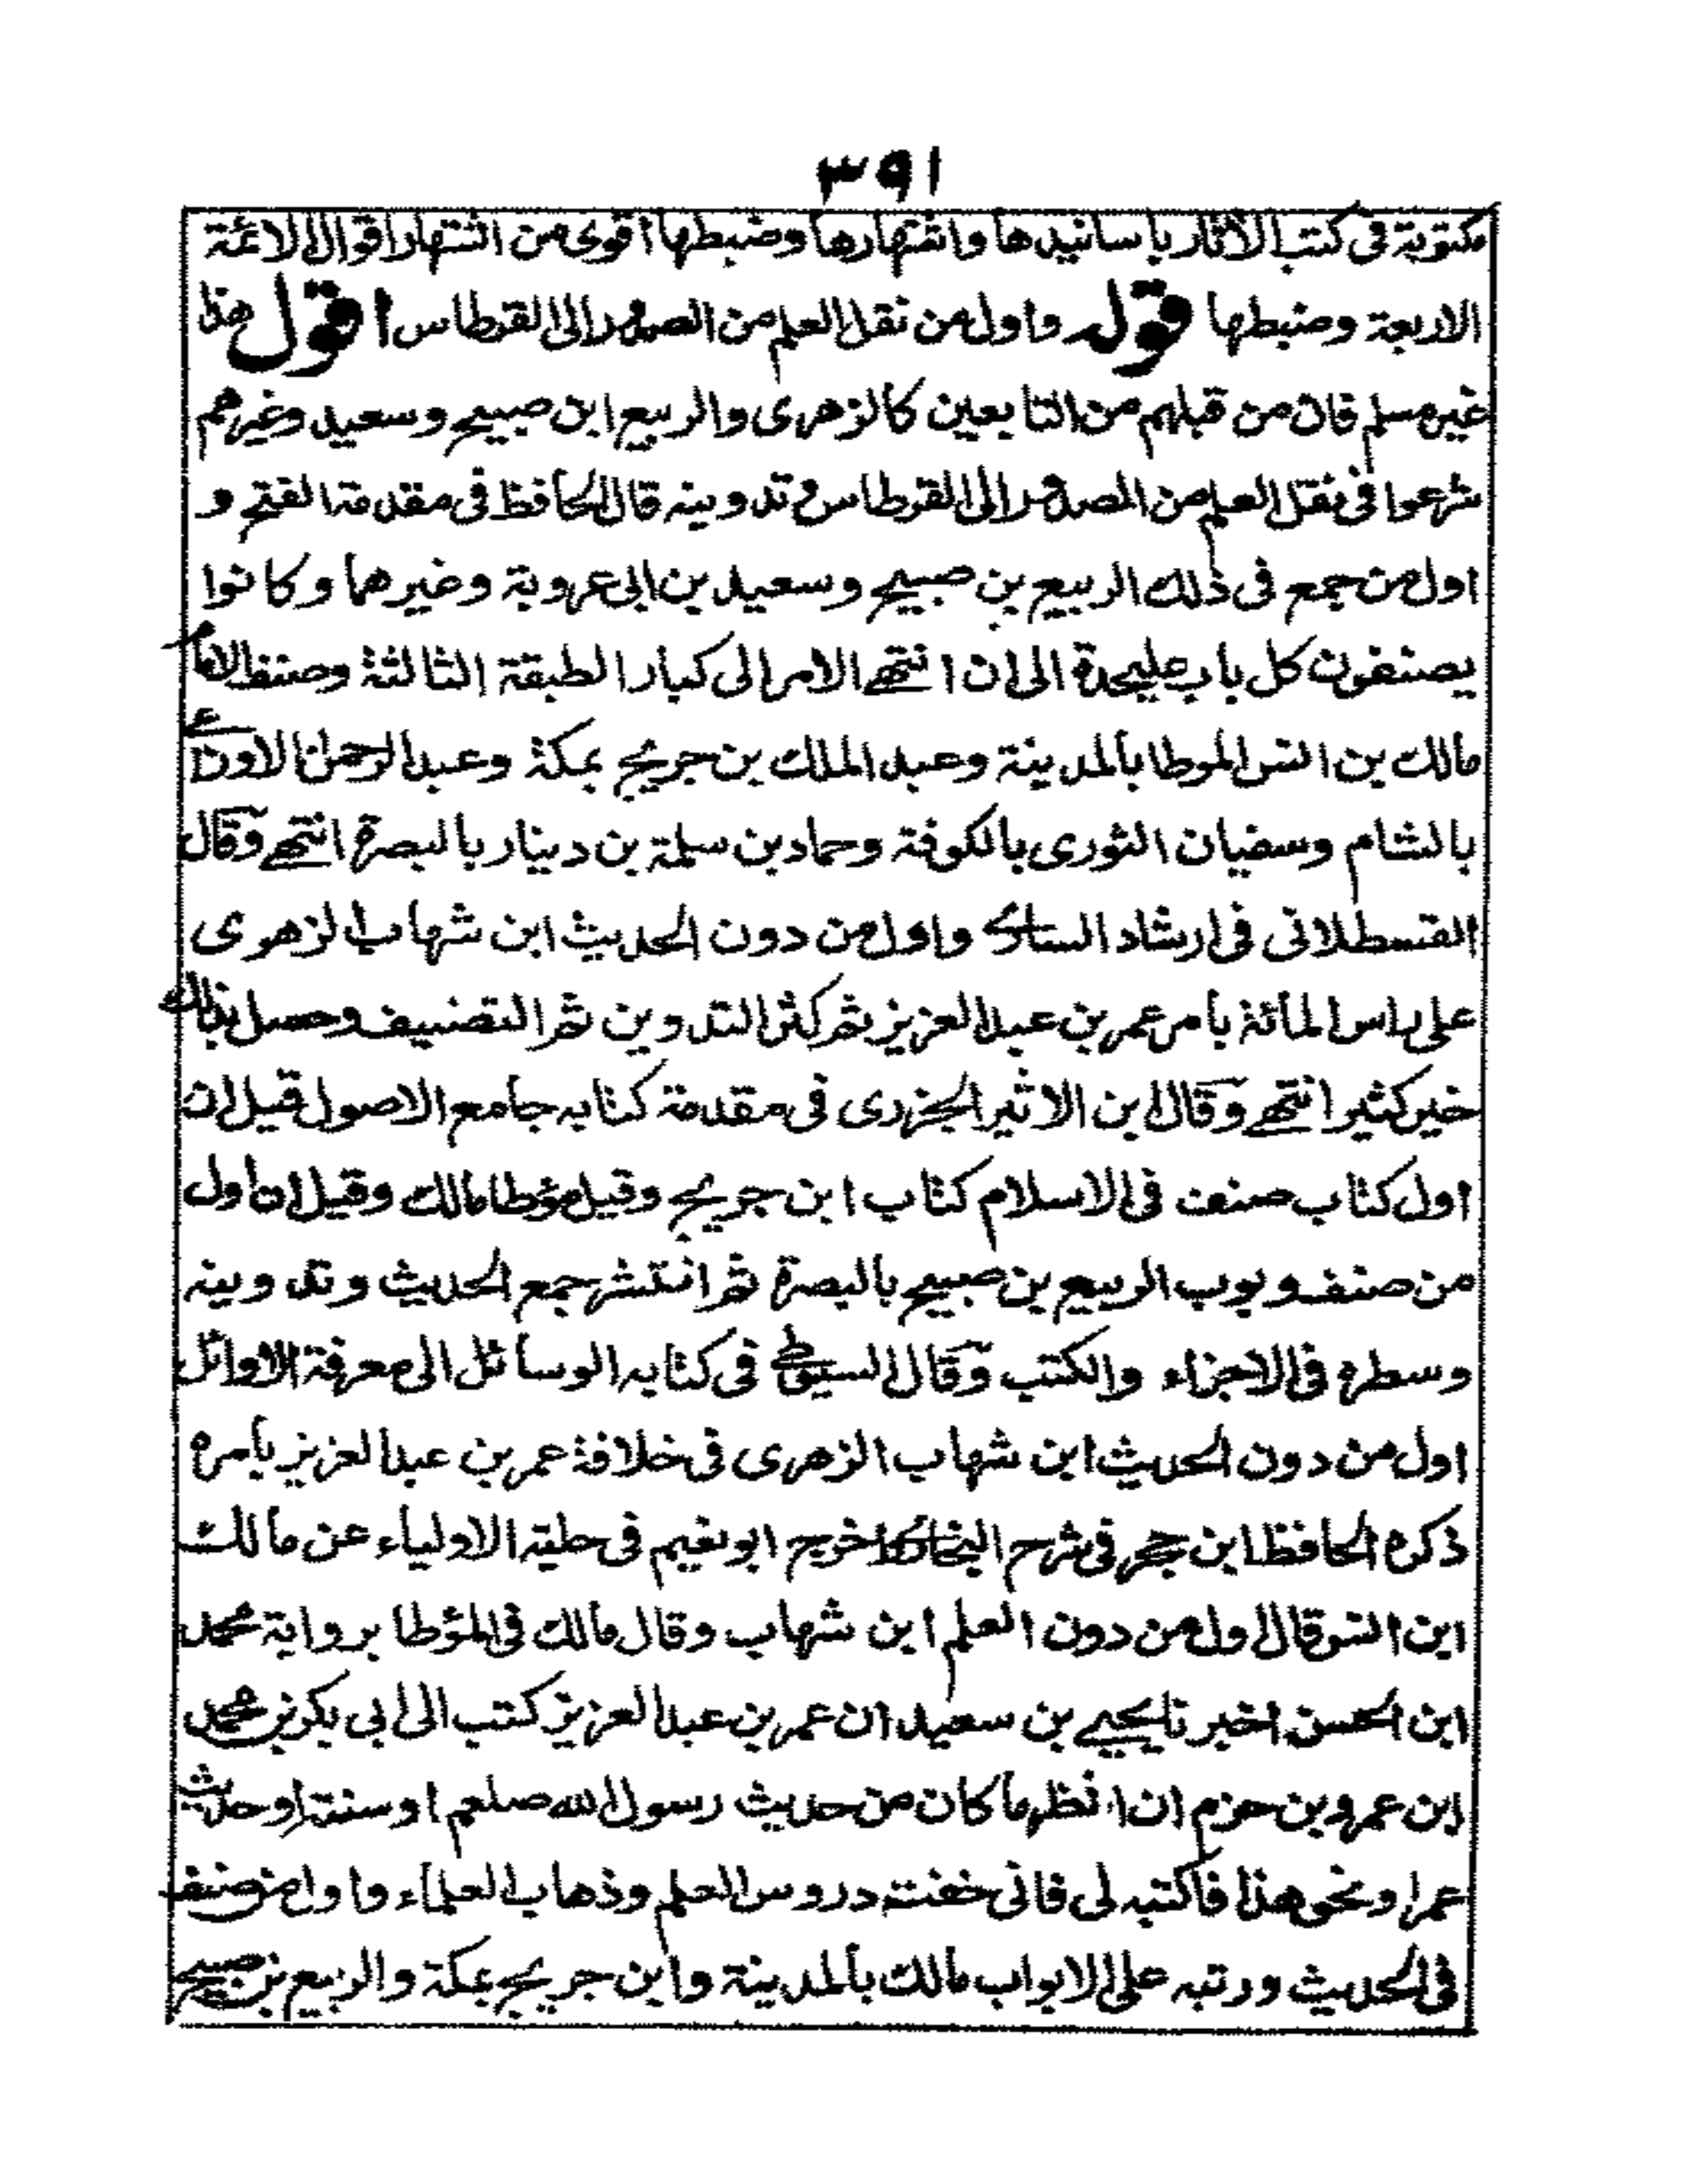 ٣٩١
مكتوبة فى كتب الأثار باسانيدها واشتهارها وضبطها أقوى من اشتهار اقوال الائمة
الاربعة وضبطها قوله واول من نقل العلم من الصدور الى القرطاس اقول هذا
غير مسلم فان من قبلهم من التابعين كالزهرى والربيع ابن صبيح وسعيد وغيرهم
شرعوا فى نقل العلم من الصدور الى القرطاس وتدوينه قال الحافظ فى مقدمة الفتح و
اول من جمع فى ذلك الربيع بن صبيح وسعيد بن ابى عروبة وغيرهما وكانوا
يصنفون كل باب عليحدة الى ان انتهى الامر الى كبار الطبقة الثالثة وصنف الامام
مالك بن انس الموطا بالمدينة وعبد الملك بن جريج بمكة وعبد الرحمن الاوزاعى
بالشام وسفيان الثورى بالكوفة وحماد بن سلمة بن دينار بالبصرة انتهى وقال
القسطلانى فى ارشاد السارى واول من دون الحديث ابن شهاب الزهرى
على راس المائة بامر عمر بن عبد العزيز ثم كثر التدوين ثم التصنيف وحصل بذلك
خير كثير انتهى وقال ابن الاثير الجزرى فى مقدمة كتابه جامع الاصول قيل ان
اول كتاب صنف فى الاسلام كتاب ابن جريج وقيل مؤطا مالك وقيل ان اول
من صنف وبوب الربيع بن صبيح بالبصرة ثم انتشر جمع الحديث وتدوينه
وسطره فى الاجزاء والكتب وقال السيوطى فى كتابه الوسائل الى معرفة الاوائل
اول من دون الحديث ابن شهاب الزهرى فى خلافة عمر بن عبد العزيز بأمره
ذكره الحافظ ابن حجر فى شرح البخارى اخرج ابو نعيم فى حلية الاولياء عن مالك
ابن انس قال اول من دون العلم ابن شهاب وقال مالك فى المؤطا برواية محمد
ابن الحسن اخبرنا يحيى بن سعيد ان عمر بن عبد العزيز كتب الى ابى بكر بن محمد
ابن عمرو بن حزم ان انظر ما كان من حديث رسول الله صلعم او سنته او حديث
عمر او نحو هذا فاكتبه لى فانى خفت دروس العلم وذهاب العلماء واول من صنف
فى الحديث ورتبه على الابواب مالك بالمدينة وابن جريج بمكة والربيع بن صبيح